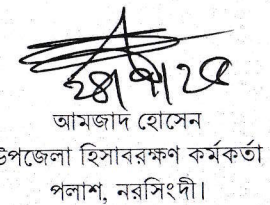 আমজাদ হোসেন
উপজেলা হিসাবরক্ষণ কর্মকর্তা
পলাশ, নরসিংদী।